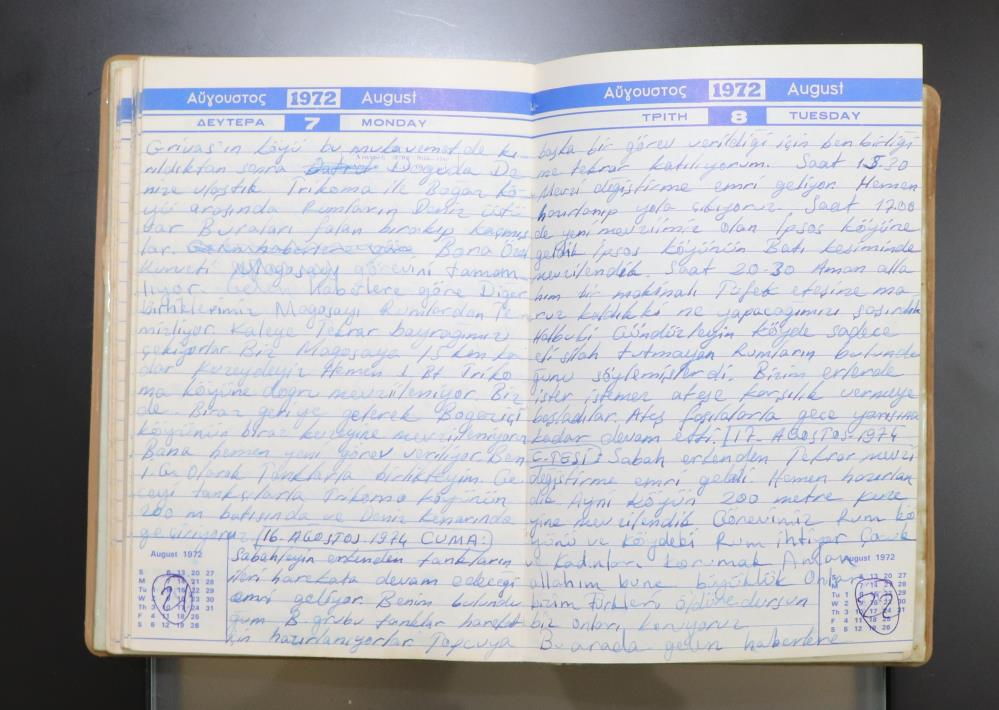 Αὔγουστος 1972 August
ΔΕΥΤΕΡΑ 7 MONDAY
Grivas'ın köyü bu mukavemet de kı
rıldıktan sonra Doğuda De
nize ulaştık Trikoma ile Boğaz kö
yü arasında Rumların Deniz üstü
var Buraları falan bırakıp kaçmış
lar. Bana Özel
Kuvveti Magosada görevini tamam
lıyor. Gelen haberlere göre Diğer
birliklerimiz Magosayı Rumlardan Te
mizliyor. Kaleye Tekrar bayrağımızı
çekiyorlar. Biz Magosaya 15 km ka
dar kuzeydeyiz Hemen 1 Bl Triko
ma köyüne doğru mevzileniyor. Biz
de Biraz geriye gelerek Bogaziçi
köyünün biraz kuzeyine mevzileniyoruz
Bana hemen yeni görev veriliyor. Ben
1. Olarak Tanklarla birlikteyim. Ge
ceyi tankçılarla Trikoma köyünün
200 m batısında ve Deniz kenarında
geçiriyoruz (16-AGOSTOS-1974 CUMA:)
Sabahleyin erkenden tankların
ileri harekata devam edeceği
emri geliyor. Benim bulundu
ğum B grubu tanklar hareket
için hazırlanıyorlar Topçuya
August 1972
S 6 13 20 27
M 7 14 21 28
Tu 1 8 15 22 29
W 2 9 16 23 30
Th 3 10 17 24 31
F 4 11 18 25
S 5 12 19 26
Αὔγουστος 1972 August
ΤΡΙΤΗ 8 TUESDAY
başka bir görev verildiği için ben birliği
me tekrar katılıyorum. Saat
Mevzi değiştirme emri geliyor. Hemen
hazırlanıp yola çıkıyoruz. Saat 17.00
de yeni mevziimiz olan İpsos köyüne
geldik İpsos köyünün Batı kesiminde
mevzilendik. Saat 20-30 Aman alla
hım bir makinalı Tüfek ateşine ma
ruz kaldık ki ne yapacağımızı şaşırdık
Halbuki Gündüzleyin köyde sadece
eli silah tutmayan Rumların bulundu
ğunu söylemişlerdi. Bizim erlerde
ister istemez ateşe karşılık vermeye
başladılar. Ateş fasılalarla gece yarısına
kadar devam etti. (17-AGOSTOS-1974
C.TESİ) Sabah erkenden Tekrar mevzi
değiştirme emri geldi. Hemen hazırlan
dık Ayni köyün 200 metre kuze
yine mevzilendik. Görevimiz Rum kö
yünü ve köydeki Rum ihtiyar Çocuk
ve Kadınları korumak Aman
allahım bu ne büyüklük Onlar
bizim Türkleri öldüre dursun
biz onları koruyoruz
Bu arada gelen haberlere
August 1972
S 6 13 20 27
M 7 14 21 28
Tu 1 8 15 22 29
W 2 9 16 23 30
Th 3 10 17 24 31
F 4 11 18 25
S 5 12 19 26